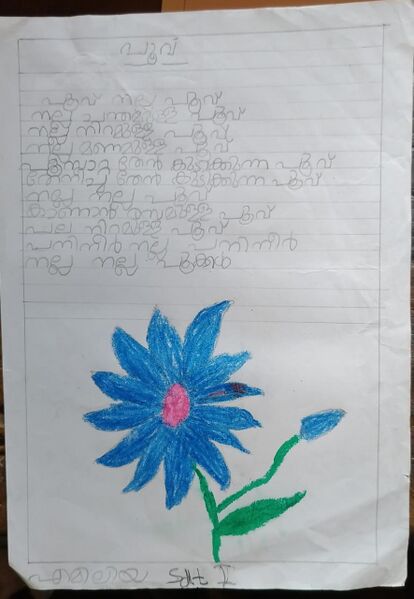 പൂവ്
പൂവ് നല്ല പൂവ്
നല്ല ചന്തമുള്ള പൂവ്
നല്ല നിറമുള്ള പൂവ്
നല്ല മണമുള്ള പൂവ്
പൂമ്പാറ്റ തേൻ കുടിക്കുന്ന പൂവ്
തേനീച്ച തേൻ കുടിക്കുന്ന പൂവ്
നല്ല നല്ല പൂവ്
കാണാൻ രസമുള്ള പൂവ്
പല നിറമുള്ള പൂവ്
പനിനീർ നല്ല പനിനീർ
നല്ല നല്ല പൂക്കൾ
എമിലിയ